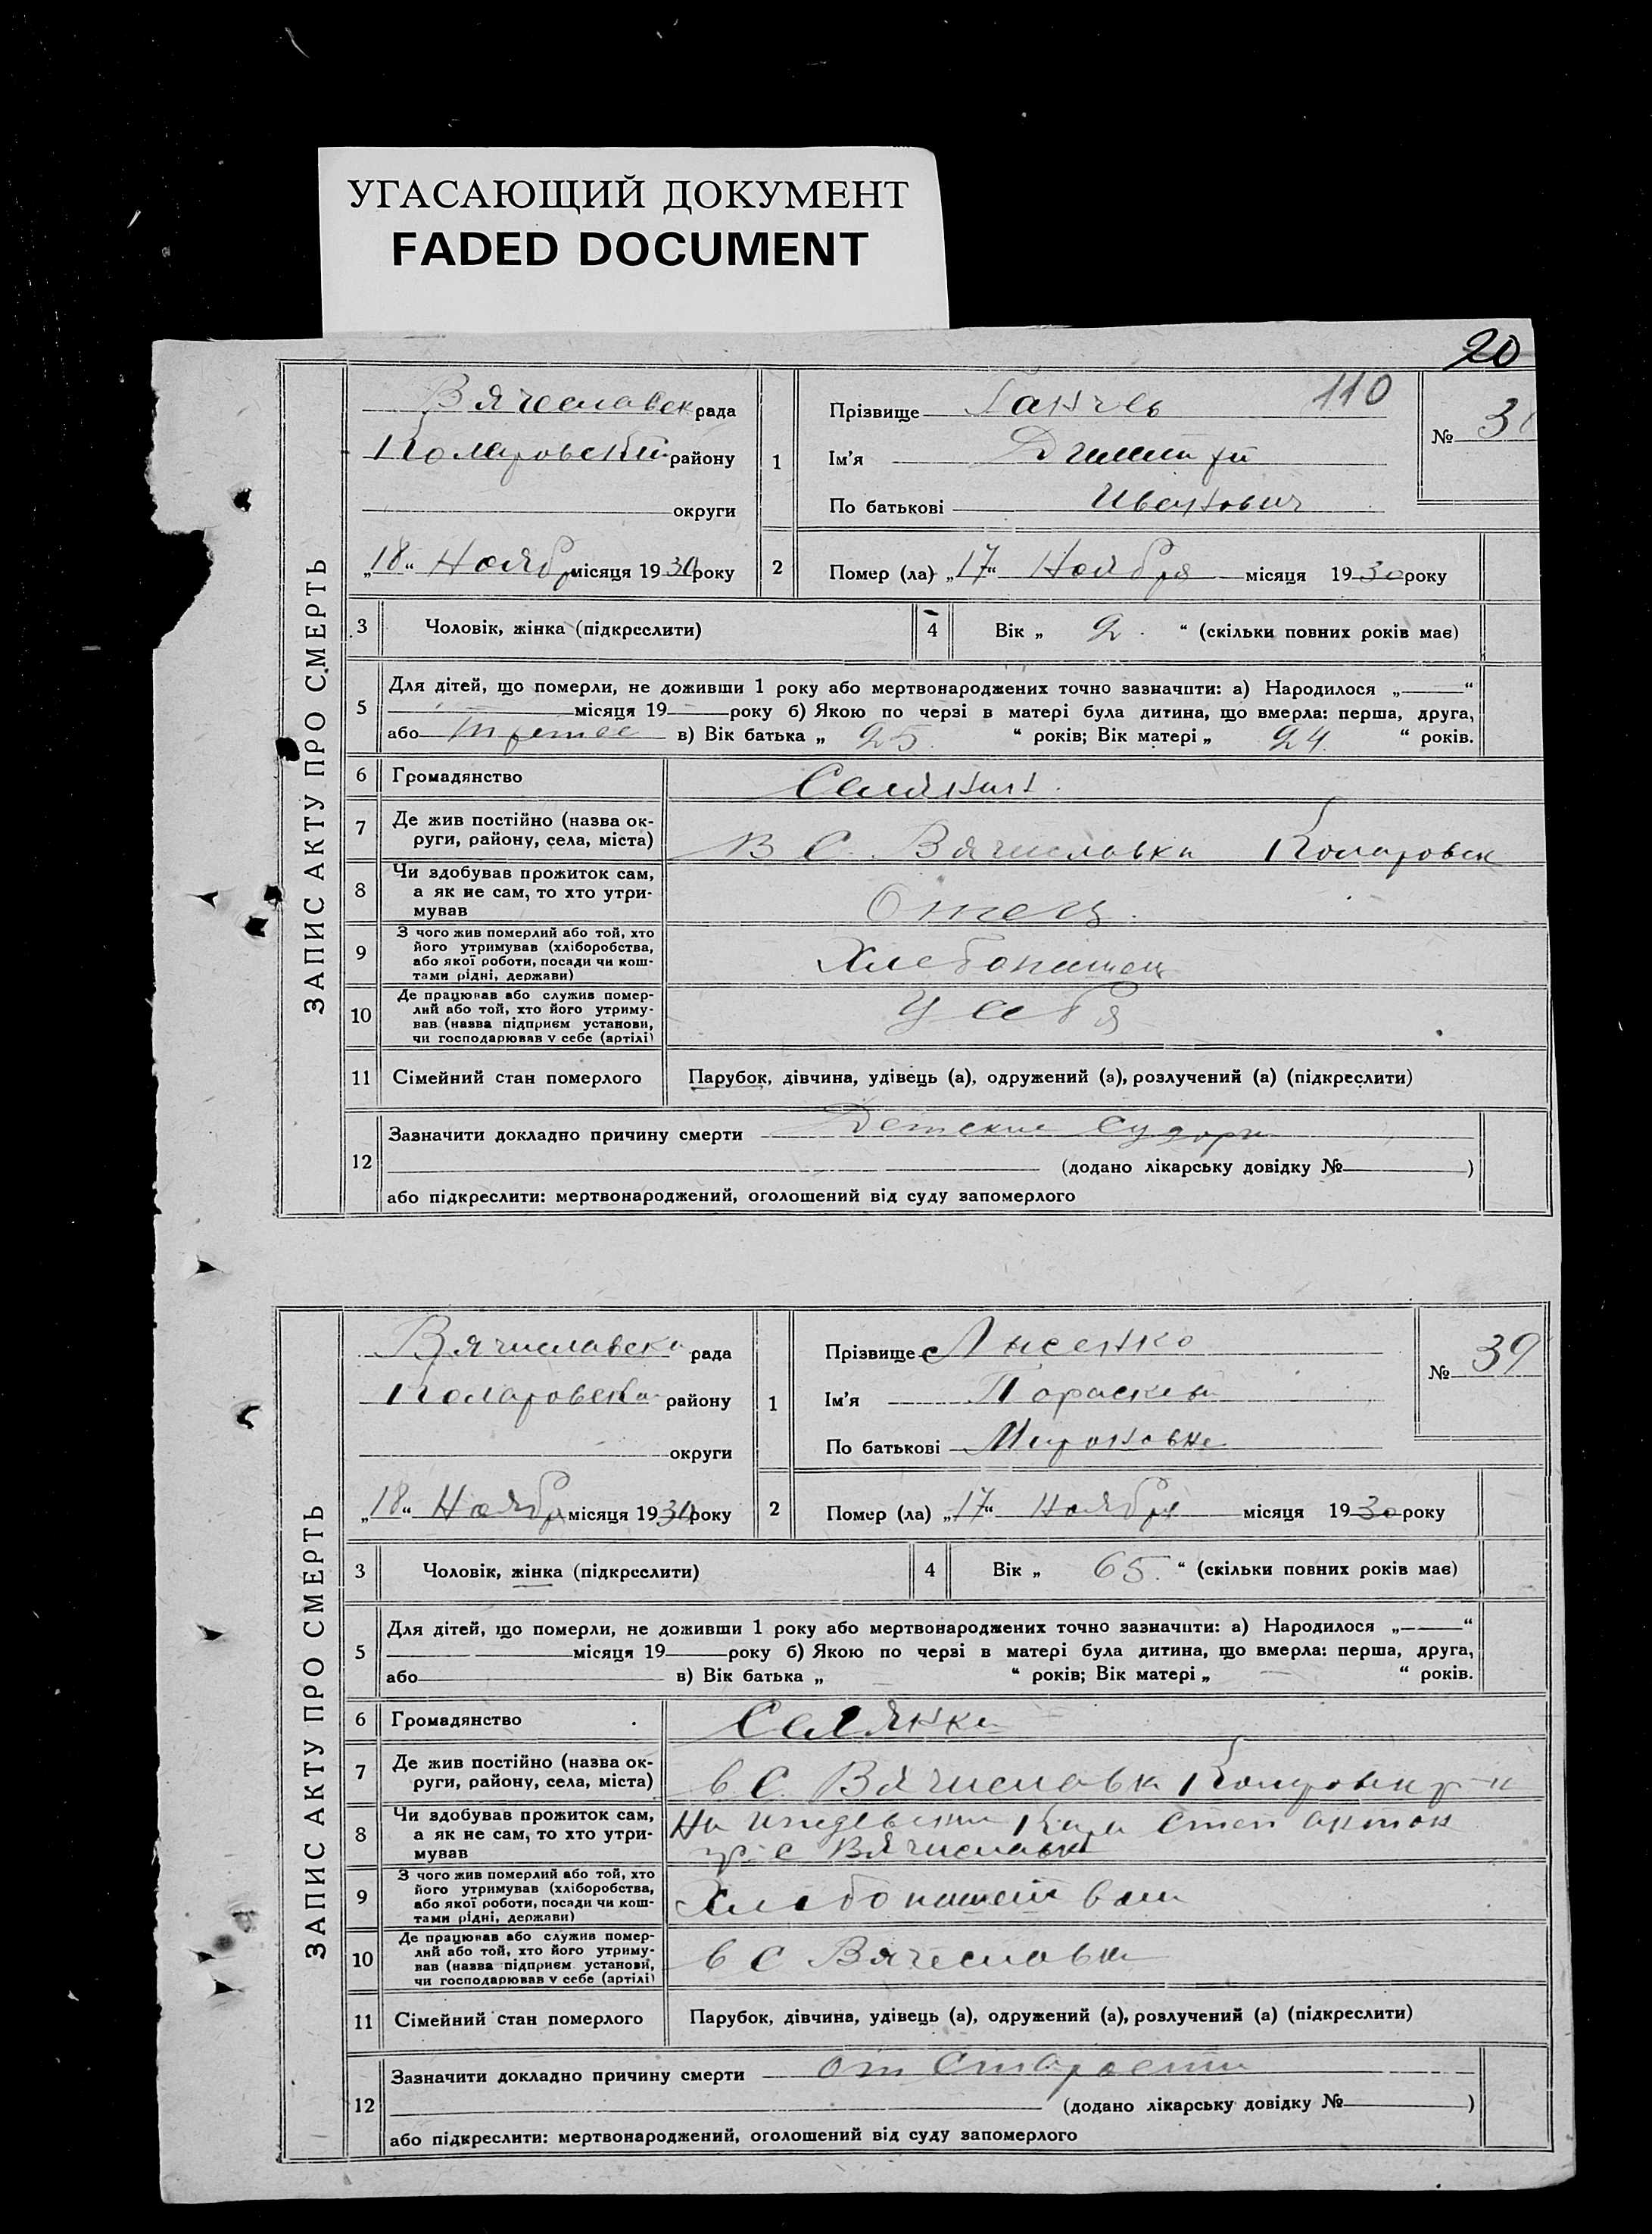 УГАСАЮЩИЙ ДОКУМЕНТ
FADED DOCUMENT
20
ЗАПИС АКТУ ПРО СМЕРТЬ
Вячеславск рада
Коларовский району
округи
„18“ Ноябр місяця 1930 року
1
Прізвище Ганчев 110
Ім'я Дмитрий
По батькові Иванович
№ 3
2 Помер (ла) „17“ Ноября місяця 1930 року
3 Чоловік, жінка (підкреслити)
4 Вік „ 2 “ (скільки повних років має)
5 Для дітей, що померли, не доживши 1 року або мертвонароджених точно зазначити: а) Народилося „ “
місяця 19 року б) Якою по черзі в матері була дитина, що вмерла: перша, друга,
або третее в) Вік батька „ 25 “ років; Вік матері „ 24 “ років.
6 Громадянство Селянин
7 Де жив постійно (назва ок-
руги, району, села, міста)
в С. Вячиславки Коларовск
8 Чи здобував прожиток сам,
а як не сам, то хто утри-
мував
Отец
9 З чого жив померлий або той, хто
його утримував (хліборобства,
або якої роботи, посади чи кош-
тами рідні, держави)
Хлебопашец
10 Де працював або служив помер-
лий або той, хто його утриму-
вав (назва підприєм установи,
чи господарював у себе (артілі)
У себя
11 Сімейний стан померлого Парубок, дівчина, удівець (а), одружений (а), розлучений (а) (підкреслити)
12 Зазначити докладно причину смерти Детские Судорги
(додано лікарську довідку № )
або підкреслити: мертвонароджений, оголошений від суду запомерлого
ЗАПИС АКТУ ПРО СМЕРТЬ
Вячиславски рада
Коларовски району
округи
„18“ Ноябр місяця 1930 року
1
Прізвище Лысенко
Ім'я Параскеи
По батькові Мироновне
№ 39
2 Помер (ла) „17“ Ноября місяця 1930 року
3 Чоловік, жінка (підкреслити)
4 Вік „ 65 “ (скільки повних років має)
5 Для дітей, що померли, не доживши 1 року або мертвонароджених точно зазначити: а) Народилося „ “
місяця 19 року б) Якою по черзі в матері була дитина, що вмерла: перша, друга,
або в) Вік батька „ “ років; Вік матері „ “ років.
6 Громадянство Селянка
7 Де жив постійно (назва ок-
руги, району, села, міста)
в С. Вячиславки Коларовск р-н
8 Чи здобував прожиток сам,
а як не сам, то хто утри-
мував
На иждевении
гр. с Вячиславки
9 З чого жив померлий або той, хто
його утримував (хліборобства,
або якої роботи, посади чи кош-
тами рідні, держави)
Хлебопашетвом
10 Де працював або служив помер-
лий або той, хто його утриму-
вав (назва підприєм установи,
чи господарював у себе (артілі)
в С Вячеславки
11 Сімейний стан померлого Парубок, дівчина, удівець (а), одружений (а), розлучений (а) (підкреслити)
12 Зазначити докладно причину смерти от Старости
(додано лікарську довідку № )
або підкреслити: мертвонароджений, оголошений від суду запомерлого